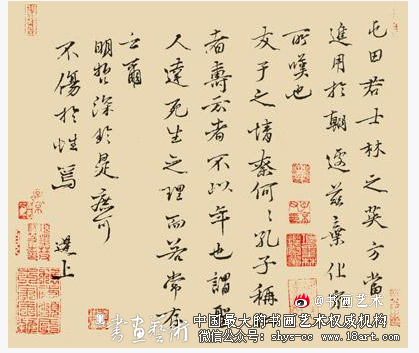 屯田君士林之英方當
進用於朝遽茲棄化實
所嘆也
友于之情奈何〻孔子稱
者壽云者不以年也謂聖
人達死生之理而若常存
云爾
明哲深於是庶可
不傷於性焉
選上
@书画艺术
書畫藝術
中国最大的书画艺术权威机构
微信公众号: shys-cc www.18art.com